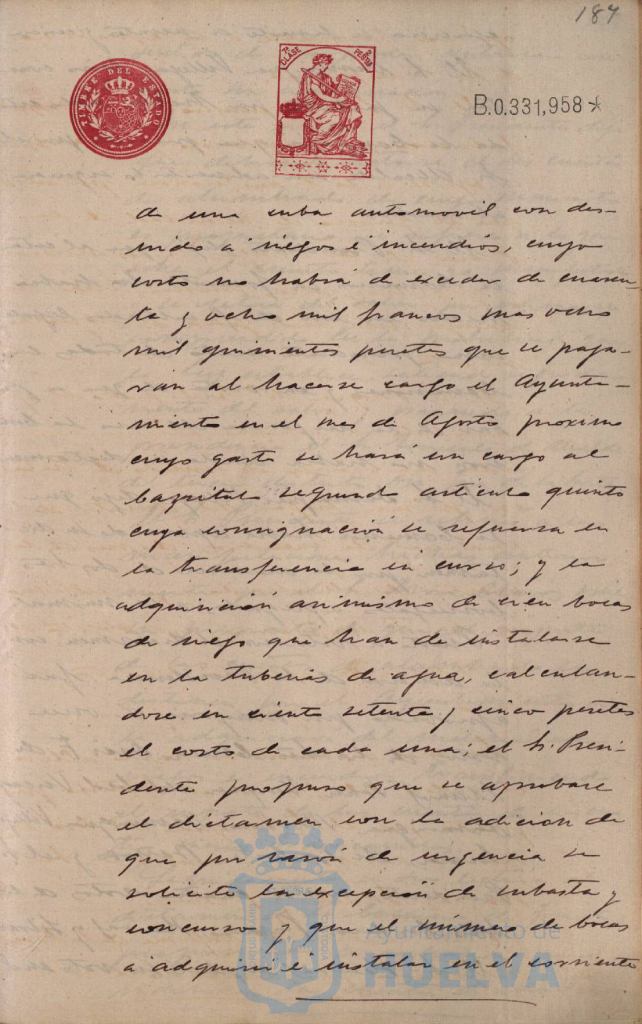 187
TIMBRE DEL ESTADO
7ª CLASE
PESETAS
B.0.331,958*
de una cuba automovil con des-
tinido a riegos é incendios, cuyo
costo no habrá de exceder de cuaren-
ta y ocho mil francos mas ocho
mil quinientas pesetas que se paga-
rán al hacerse cargo el Ayunta-
miento en el mes de Agosto proximo
cuyo gasto se hará con cargo al
Capitulo segundo articulo quinto
cuya consignación se refuerza en
la transferencia en curso; y la
adquisición asimismo de cien bocas
de riego que han de instalarse
en la tuberias de agua, calculan-
dose en ciento setenta y cinco pesetas
el costo de cada una; el Sr. Presi-
dente propuso que se aprobase
el dictamen con la adición de
que por razón de urgencia se
solicite la excepción de subasta y
concurso y que el número de bocas
a adquirir é instalar en el corriente
Ayuntamiento de
HUELVA